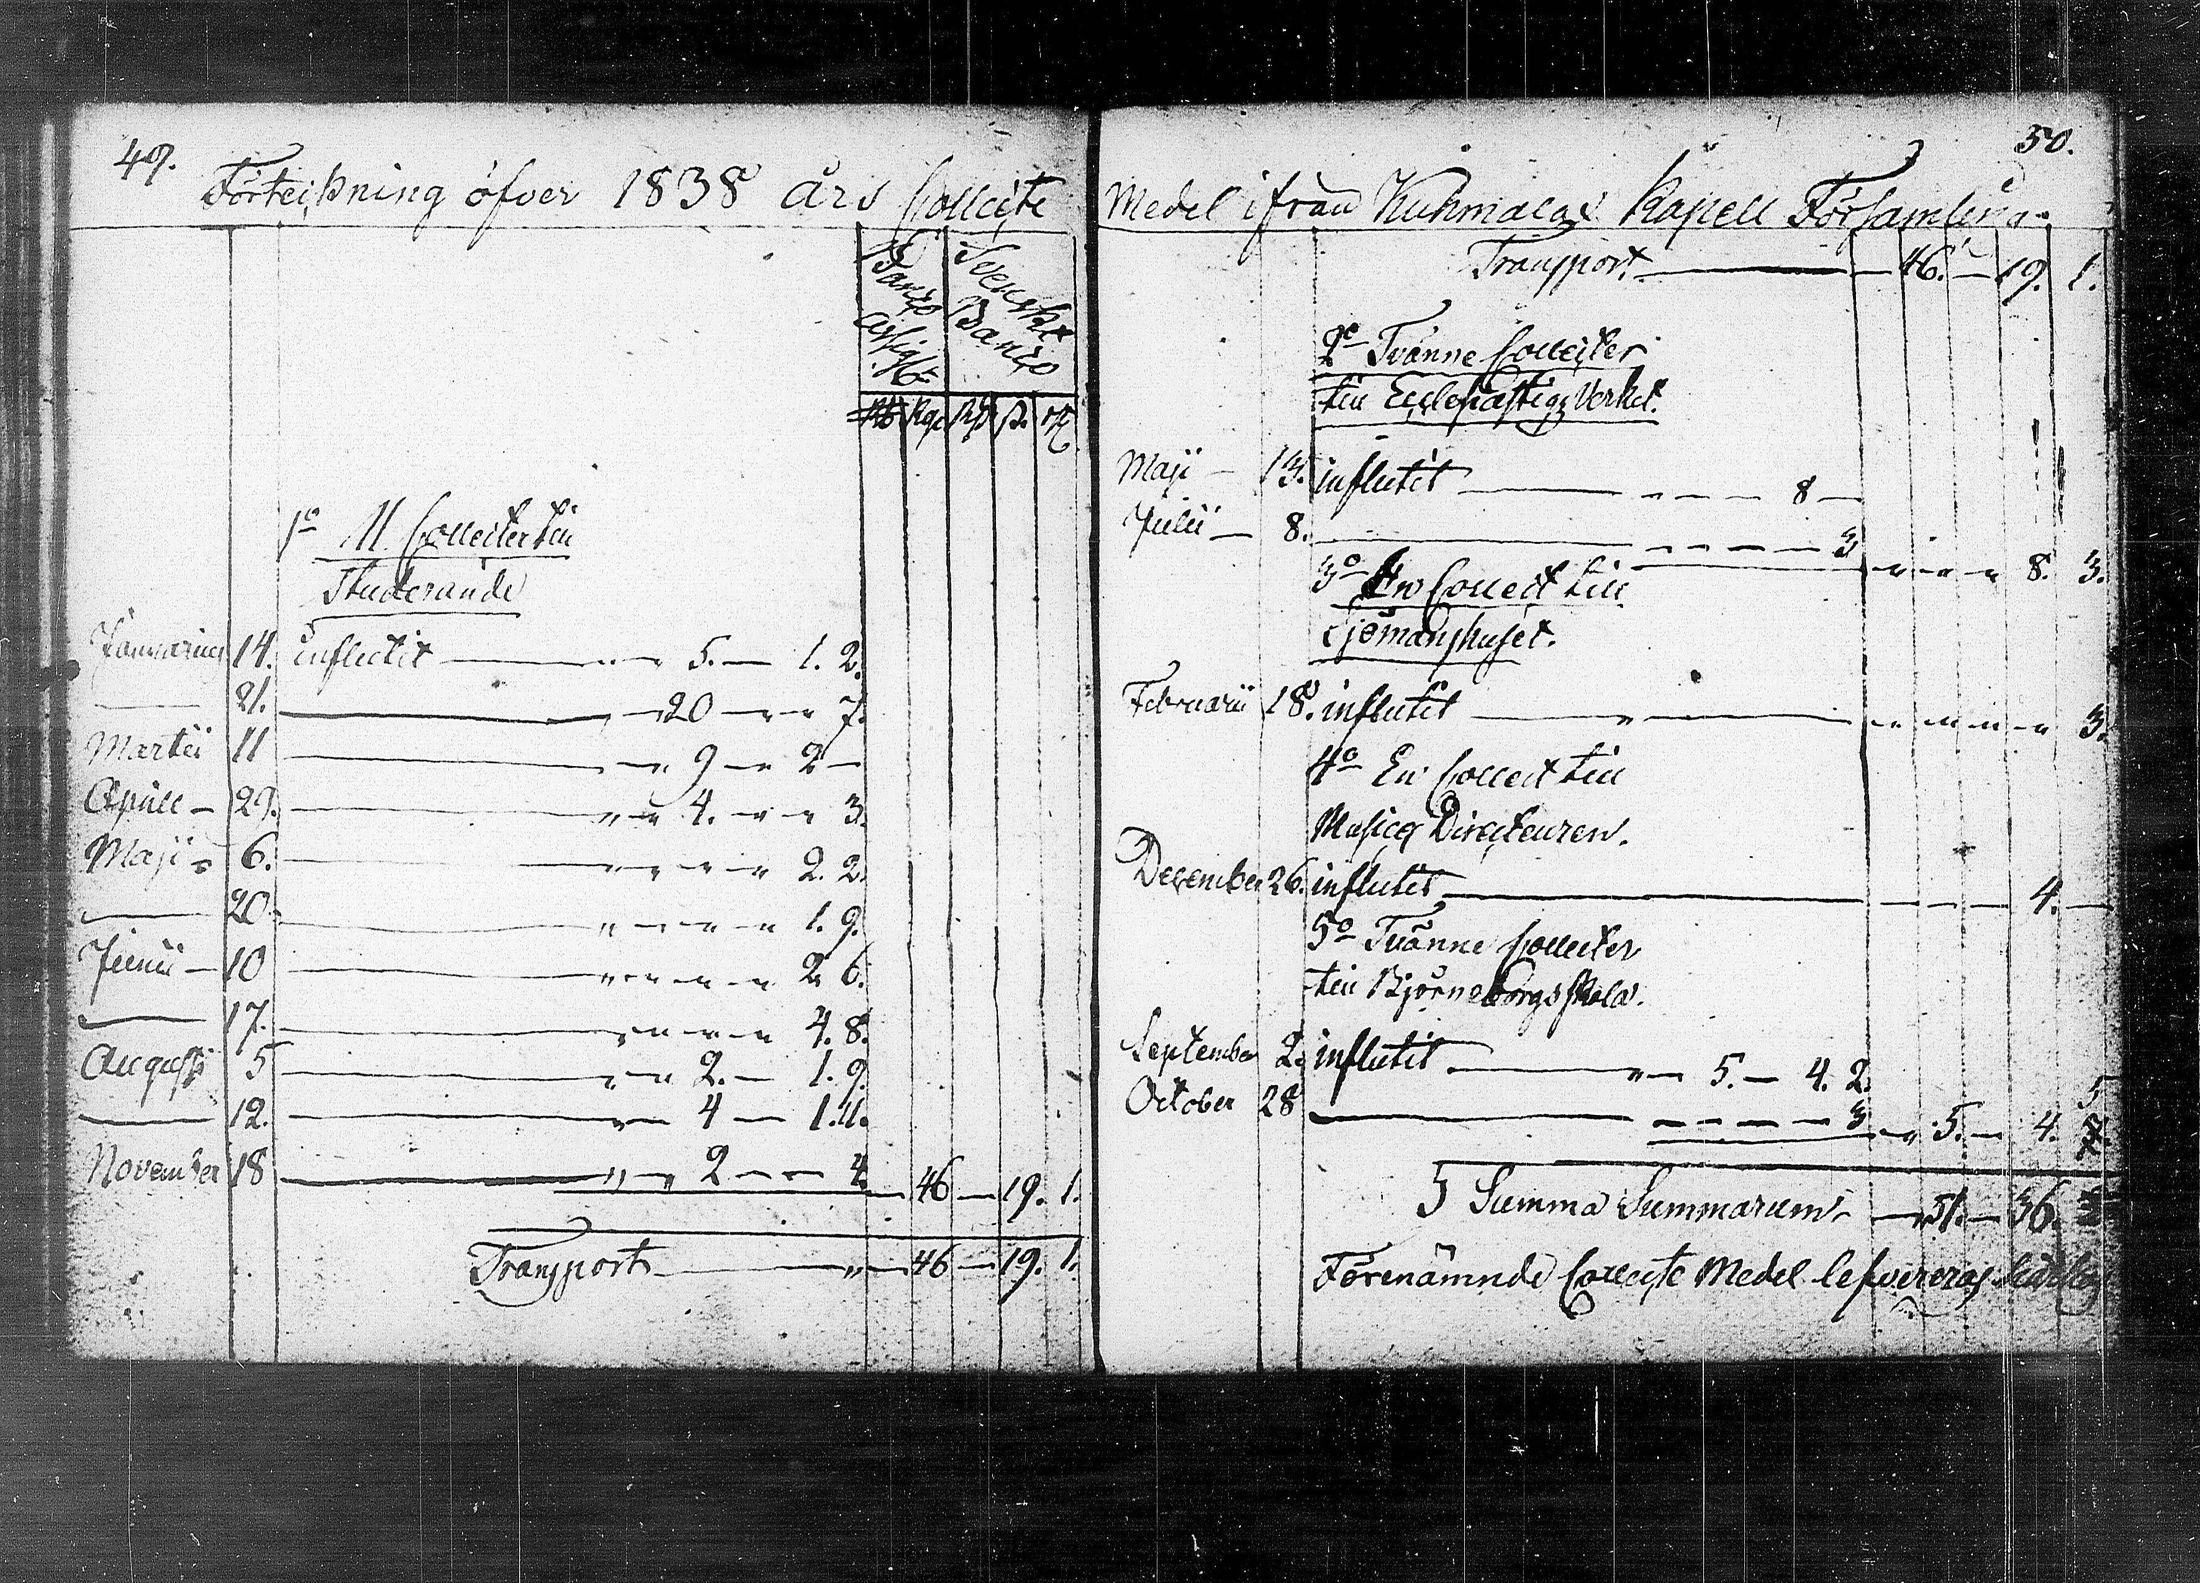 49.
Förteckning öfver 1838 års Collecte
Banco Assig: Svenska Banco
Rb Kop Rd s. rst
1o 11 Collecter till
Studerande
Januarius 14. influtit — " — 5. — 1. 2.
— 21. — " — 20 — " — " 7.
Martii 11 — " — " 9 — " 2 —
Aprill — 29. — " — " 4. — " — " 3.
Maji — 6. — " — " — " — " 2. 2.
— 20. — " — " — " — " 1. 9.
Junii — 10 — " — " — " — " 2 6.
— 17. — " — " — " — " 4. 8.
Augusti 5 — " — " 2. — 1. 9.
— 12. — " — 4 — 1. 11.
November 18 — " — " 2 — " — 4. — 46 — 19. 1.
Transport — " — 46 — 19. 1.
50.
Medel ifrån Kuhmalax Kapell Församling
Transport — 46. — 19. 1.
2o Tvänne Collecter
till Ecclesiastique Verket.
Maji — 13. influtit — — — — 8 —
Julii — 8. — — — — — 3 " — " — " 8. 3.
3o En Collect till
Sjömanshuset.
Februarii 18. influtit — " — " — " — " — " 3.
4o En Collect till
Musice Directeuren.
December 26. influtit — — — — 4. —
5o Tvänne Collecter
till Björneborgs skola.
September 2. influtit — " — 5. — 4. 2.
October 28 — — — — — 3 — " 5. — 4. 5
Summa Summarum — " 51. — 36.
Förenämnde Collecte Medel lefvereras